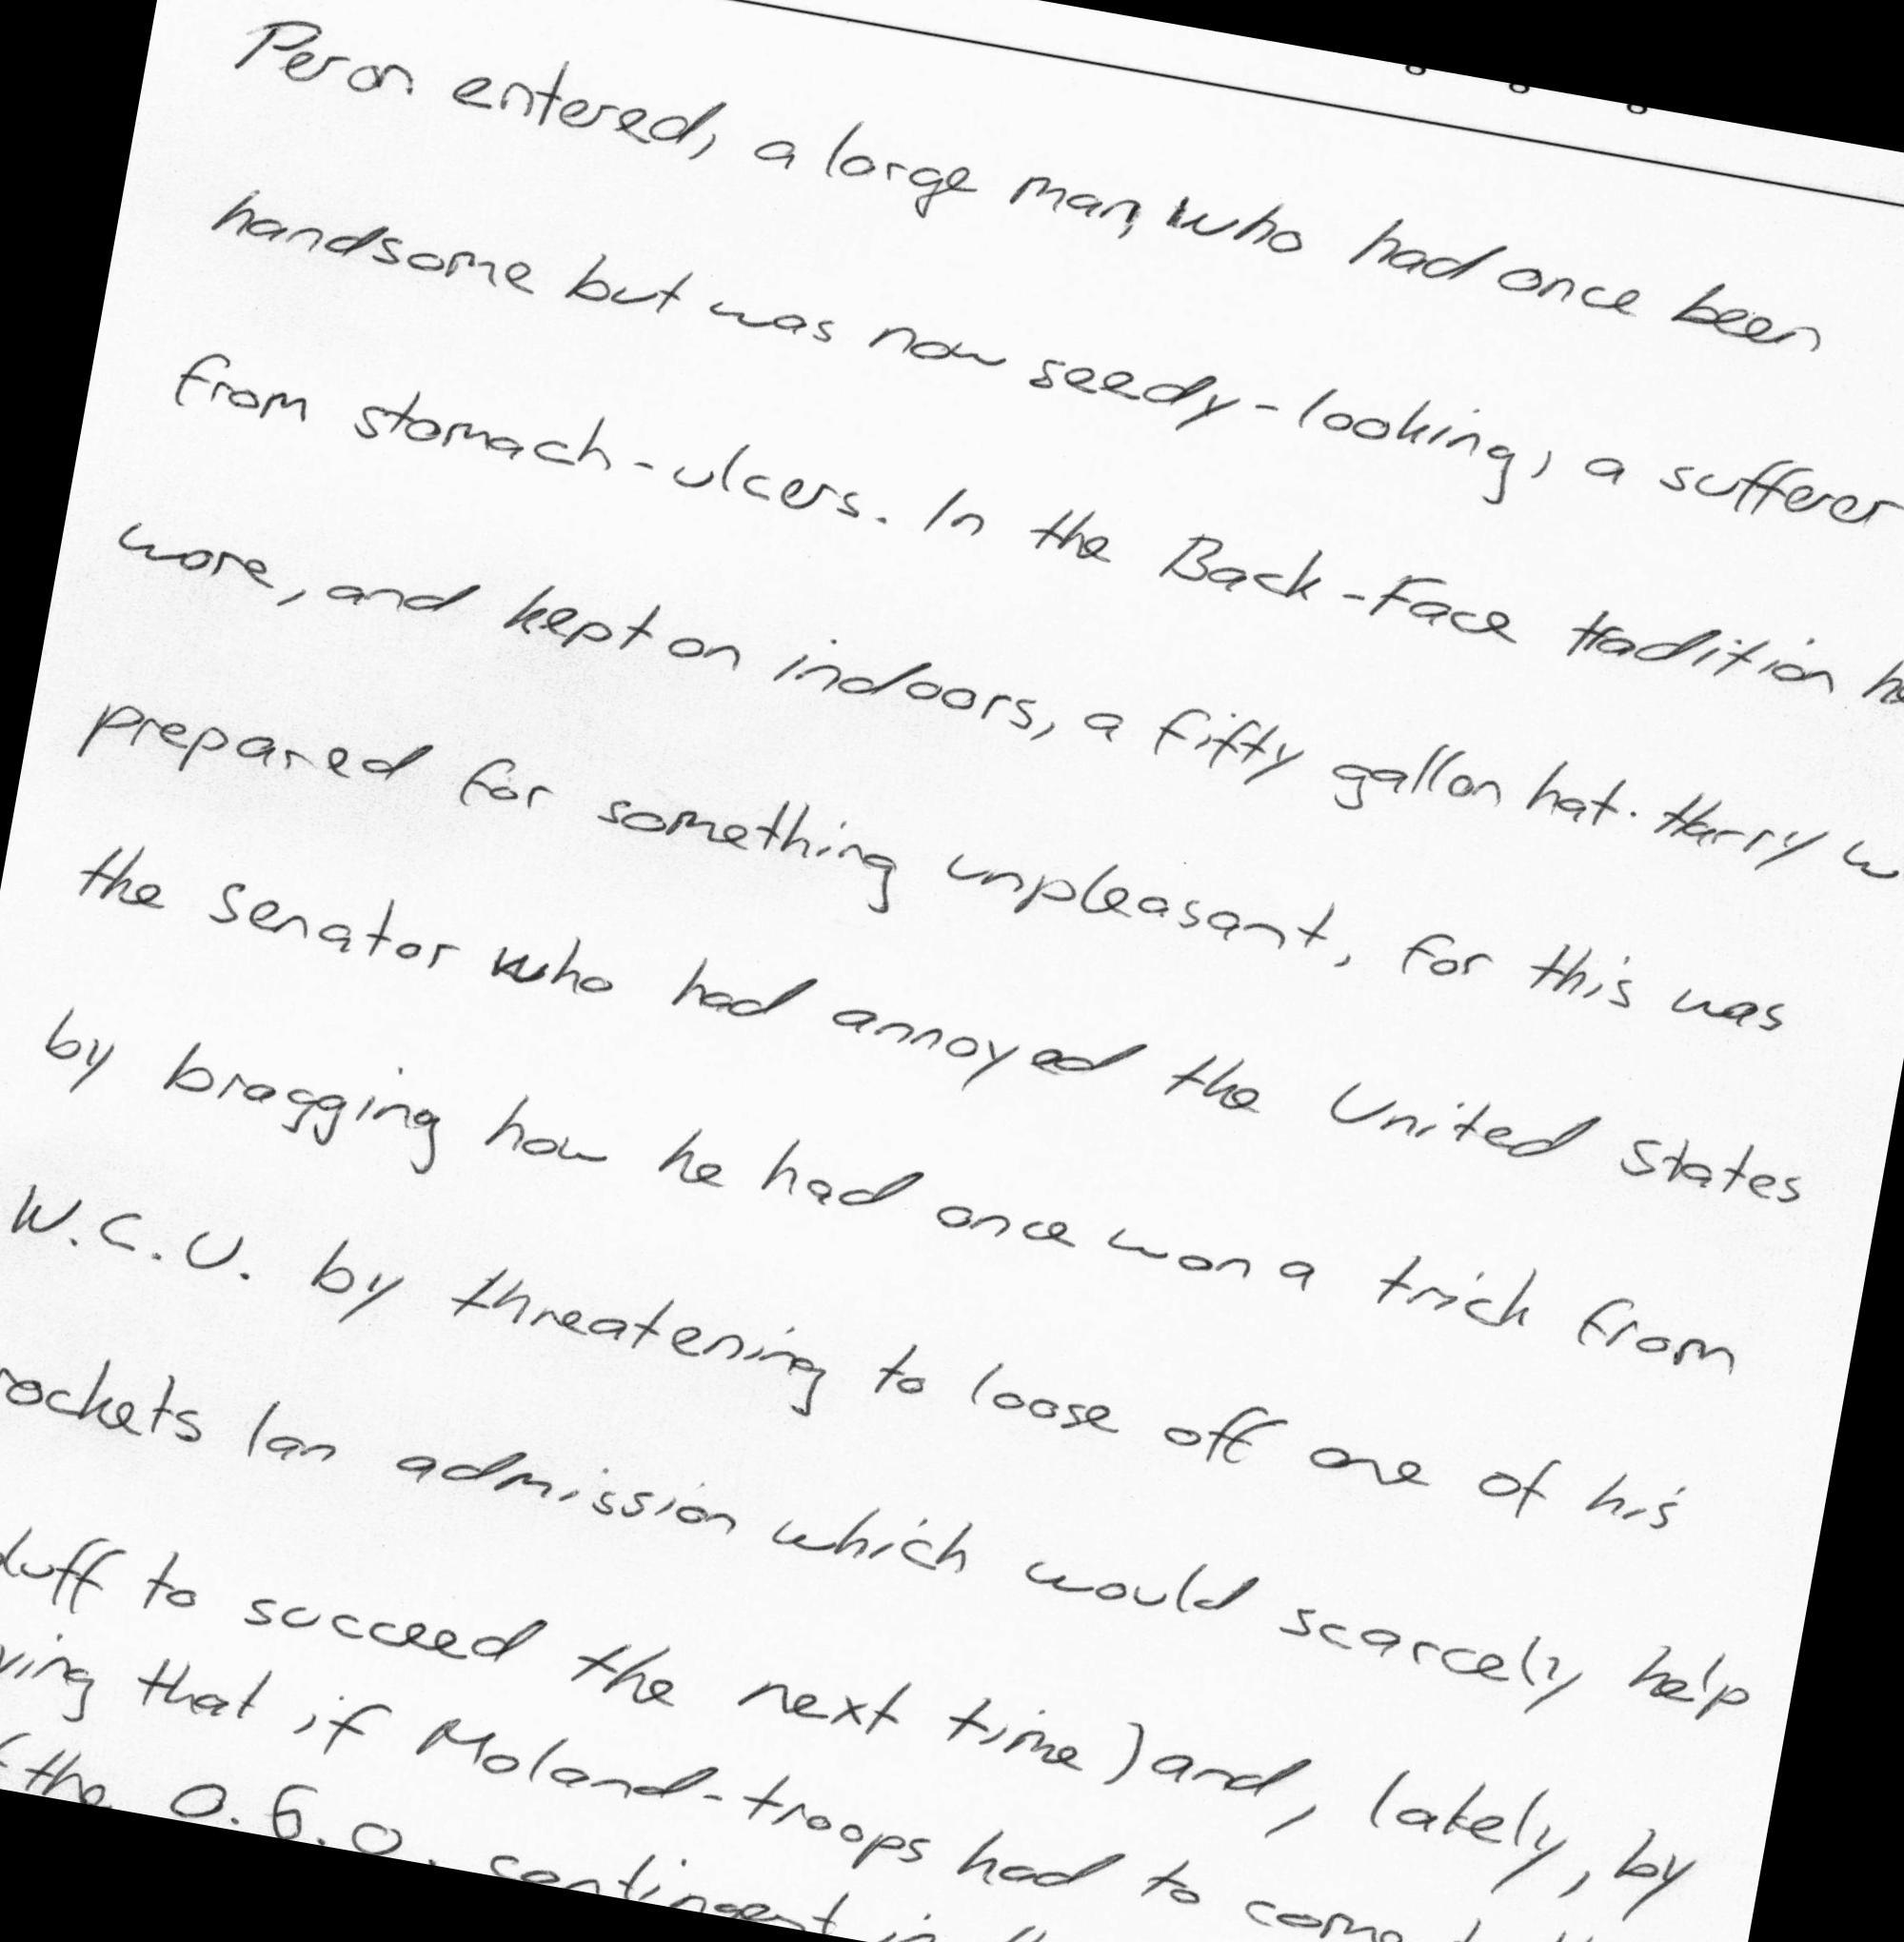 Peron entered, a large man, who had once been
handsome but was now seedy-looking, a sufferer
from stomach-ulcers. In the Back-Face tradition he
wore, and kept on indoors, a fifty gallon hat. Harry
prepared for something unpleasant, for this was
the senator who had annoyed the United States
by bragging how he had once won a trick from
W.C.U. by threatening to loose off one of his
rockets (an admission which would scarcely help
to succeed the next time) and, lately, by
that if Moland-troops had to come
the O.G.O. contingent